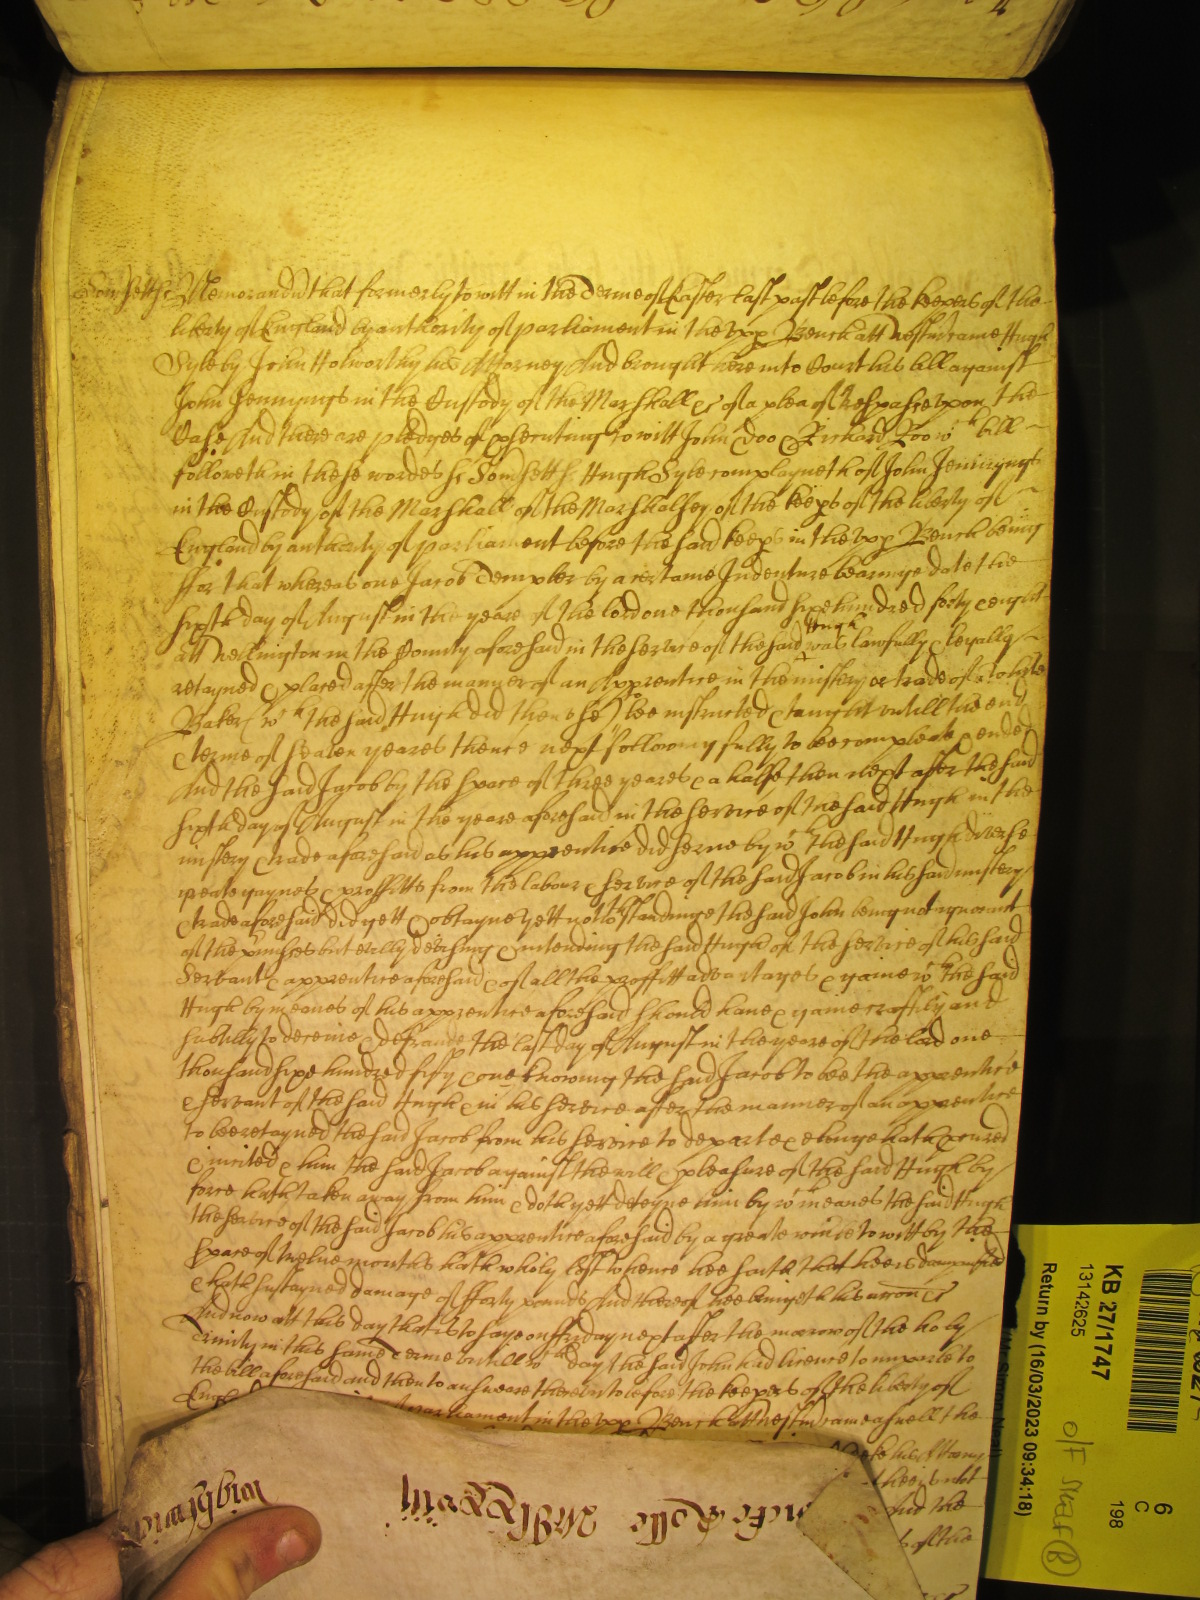 Somsett ss Memorandu that formerly to witt in the Terme of Easter last past before the keepers of the
liberty of England by authority of parliament in the upp Bench att Westm came Hugh
Syle by John Holworthy his Attorney And brought here into Court his bill against
John Jennyngs in the Custody of the Marshall &c of a plea of Trespasse upon the
Case And there are pledges of psecuting to witt John Doo & Richard Roo wch bill
followeth in these wordes ss Somsett ss Hugh Syle complayneth of John Jennyngs
in the Custody of the Marshall of the Marshalsey of the keeps of the liberty of
England by authority of parliament before the said keeps in the upp Bench being
ffor that whereas one Jacob Templer by a certaine Indenture bearinge date the
sixth day of August in the yeare of the lord one thousand sixe hundred forty & eight
att Wellington in the County aforesaid in the service of the said Hugh was lawfully & legally
retayned & placed after the manner of an Apprentice in the mistery or trade of a
Baker wch the said Hugh did then use to bee instructed & taught untill the end
& terme of seaven yeares thence next followinge fully to bee compleate & ended
And the said Jacob by the space of three yeares & a halfe then next after the said
sixth day of August in the yeare aforesaid in the service of the said Hugh in the
mistery & trade aforesaid as his apprentice did serve by wch the said Hugh diverse
greate gaynes & proffitts from the labour & service of the said Jacob in his said mistery
& trade aforesaid did gett & obtayne Yett notwthstandinge the said John being not ignorant
of the pmisses but evilly devising & intending the said Hugh of the service of his said
Servant & apprentice aforesaid & of all the proffitt advantages & gaine wch the said
Hugh by meanes of his apprentice aforesaid should have & gaine craftily and
subtilly to deceive & defraude the last day of August in the yeare of the lord one
thousand sixe hundred fifty & one knowing the said Jacob to bee the apprentice
& servant of the said Hugh & in his service after the manner of an apprentice
to bee retayned the said Jacob from his service to departe & elonge hath pcured
& incited & him the said Jacob against the will & pleasure of the said Hugh by
force hath taken away from him & doth yett deteyne him by wch meanes the said Hugh
the service of the said Jacob his apprentice aforesaid by a greate time to witt by the
space of twelve months hath wholy lost whence hee saith that hee is damnified
& hath sustayned damage of fforty pounds And thereof hee bringeth his &c
And now att this day that is to say on ffryday next after the morrow of the holy
Trinity in this same Terme untill wch day the said John had licence to imparle to
the bill aforesaid and then to answeare therunto before the keepers of the liberty of
parliament in the upp Bench att Westm came aswell the
his Attorny
hee is not
And the
KB 27/1747
13142625
Return by (16/03/2023 09:34:18)
6
C
198